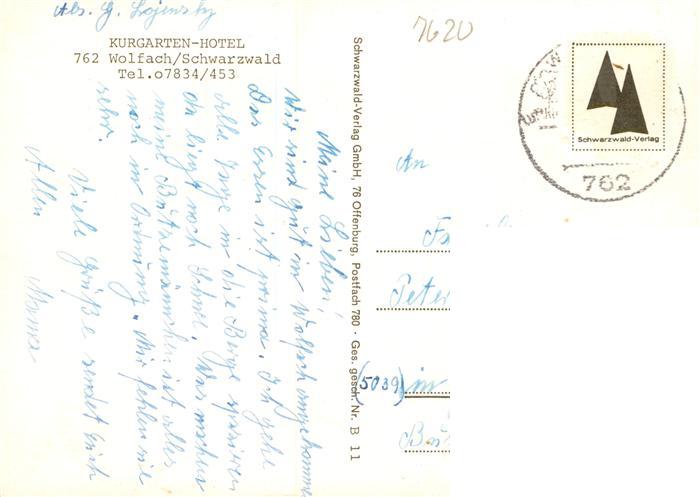 Abs. G. Lojensky
KURGARTEN-HOTEL
762 Wolfach/Schwarzwald
Tel.o7834/453
Meine Lieben!
Wir sind gut in Wolfach angekommen
Das Essen ist prima. Ich gehe
alle Tage in die Berge spazieren
da liegt noch Schnee. Was machen
meine ist alles
noch in Ordnung. Mir fehlen sie
sehr.
Viele Grüße sendet Euch
Allen
Mama
Schwarzwald-Verlag GmbH, 76 Offenburg, Postfach 780 · Ges. gesch. Nr. B 11
7620
Schwarzwald-Verlag
762
An
Fa
Peter
(5039) in